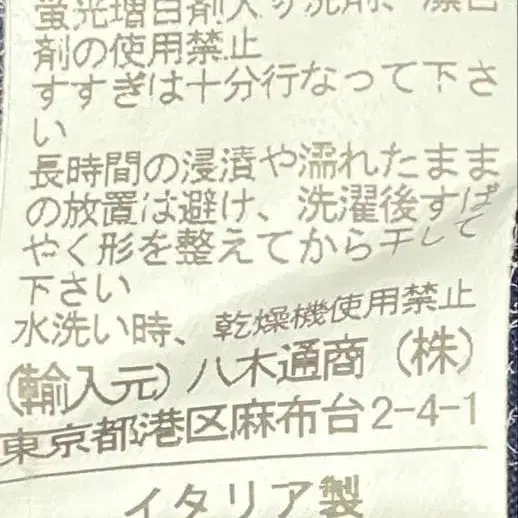 蛍光増白剤入り洗剤、漂白
剤の使用禁止
すすぎは十分行なって下さ
い
長時間の浸漬や濡れたまま
の放置は避け、洗濯後すば
やく形を整えてから干して
下さい
水洗い時、乾燥機使用禁止
(輸入元)八木通商(株)
東京都港区麻布台2-4-1
イタリア製